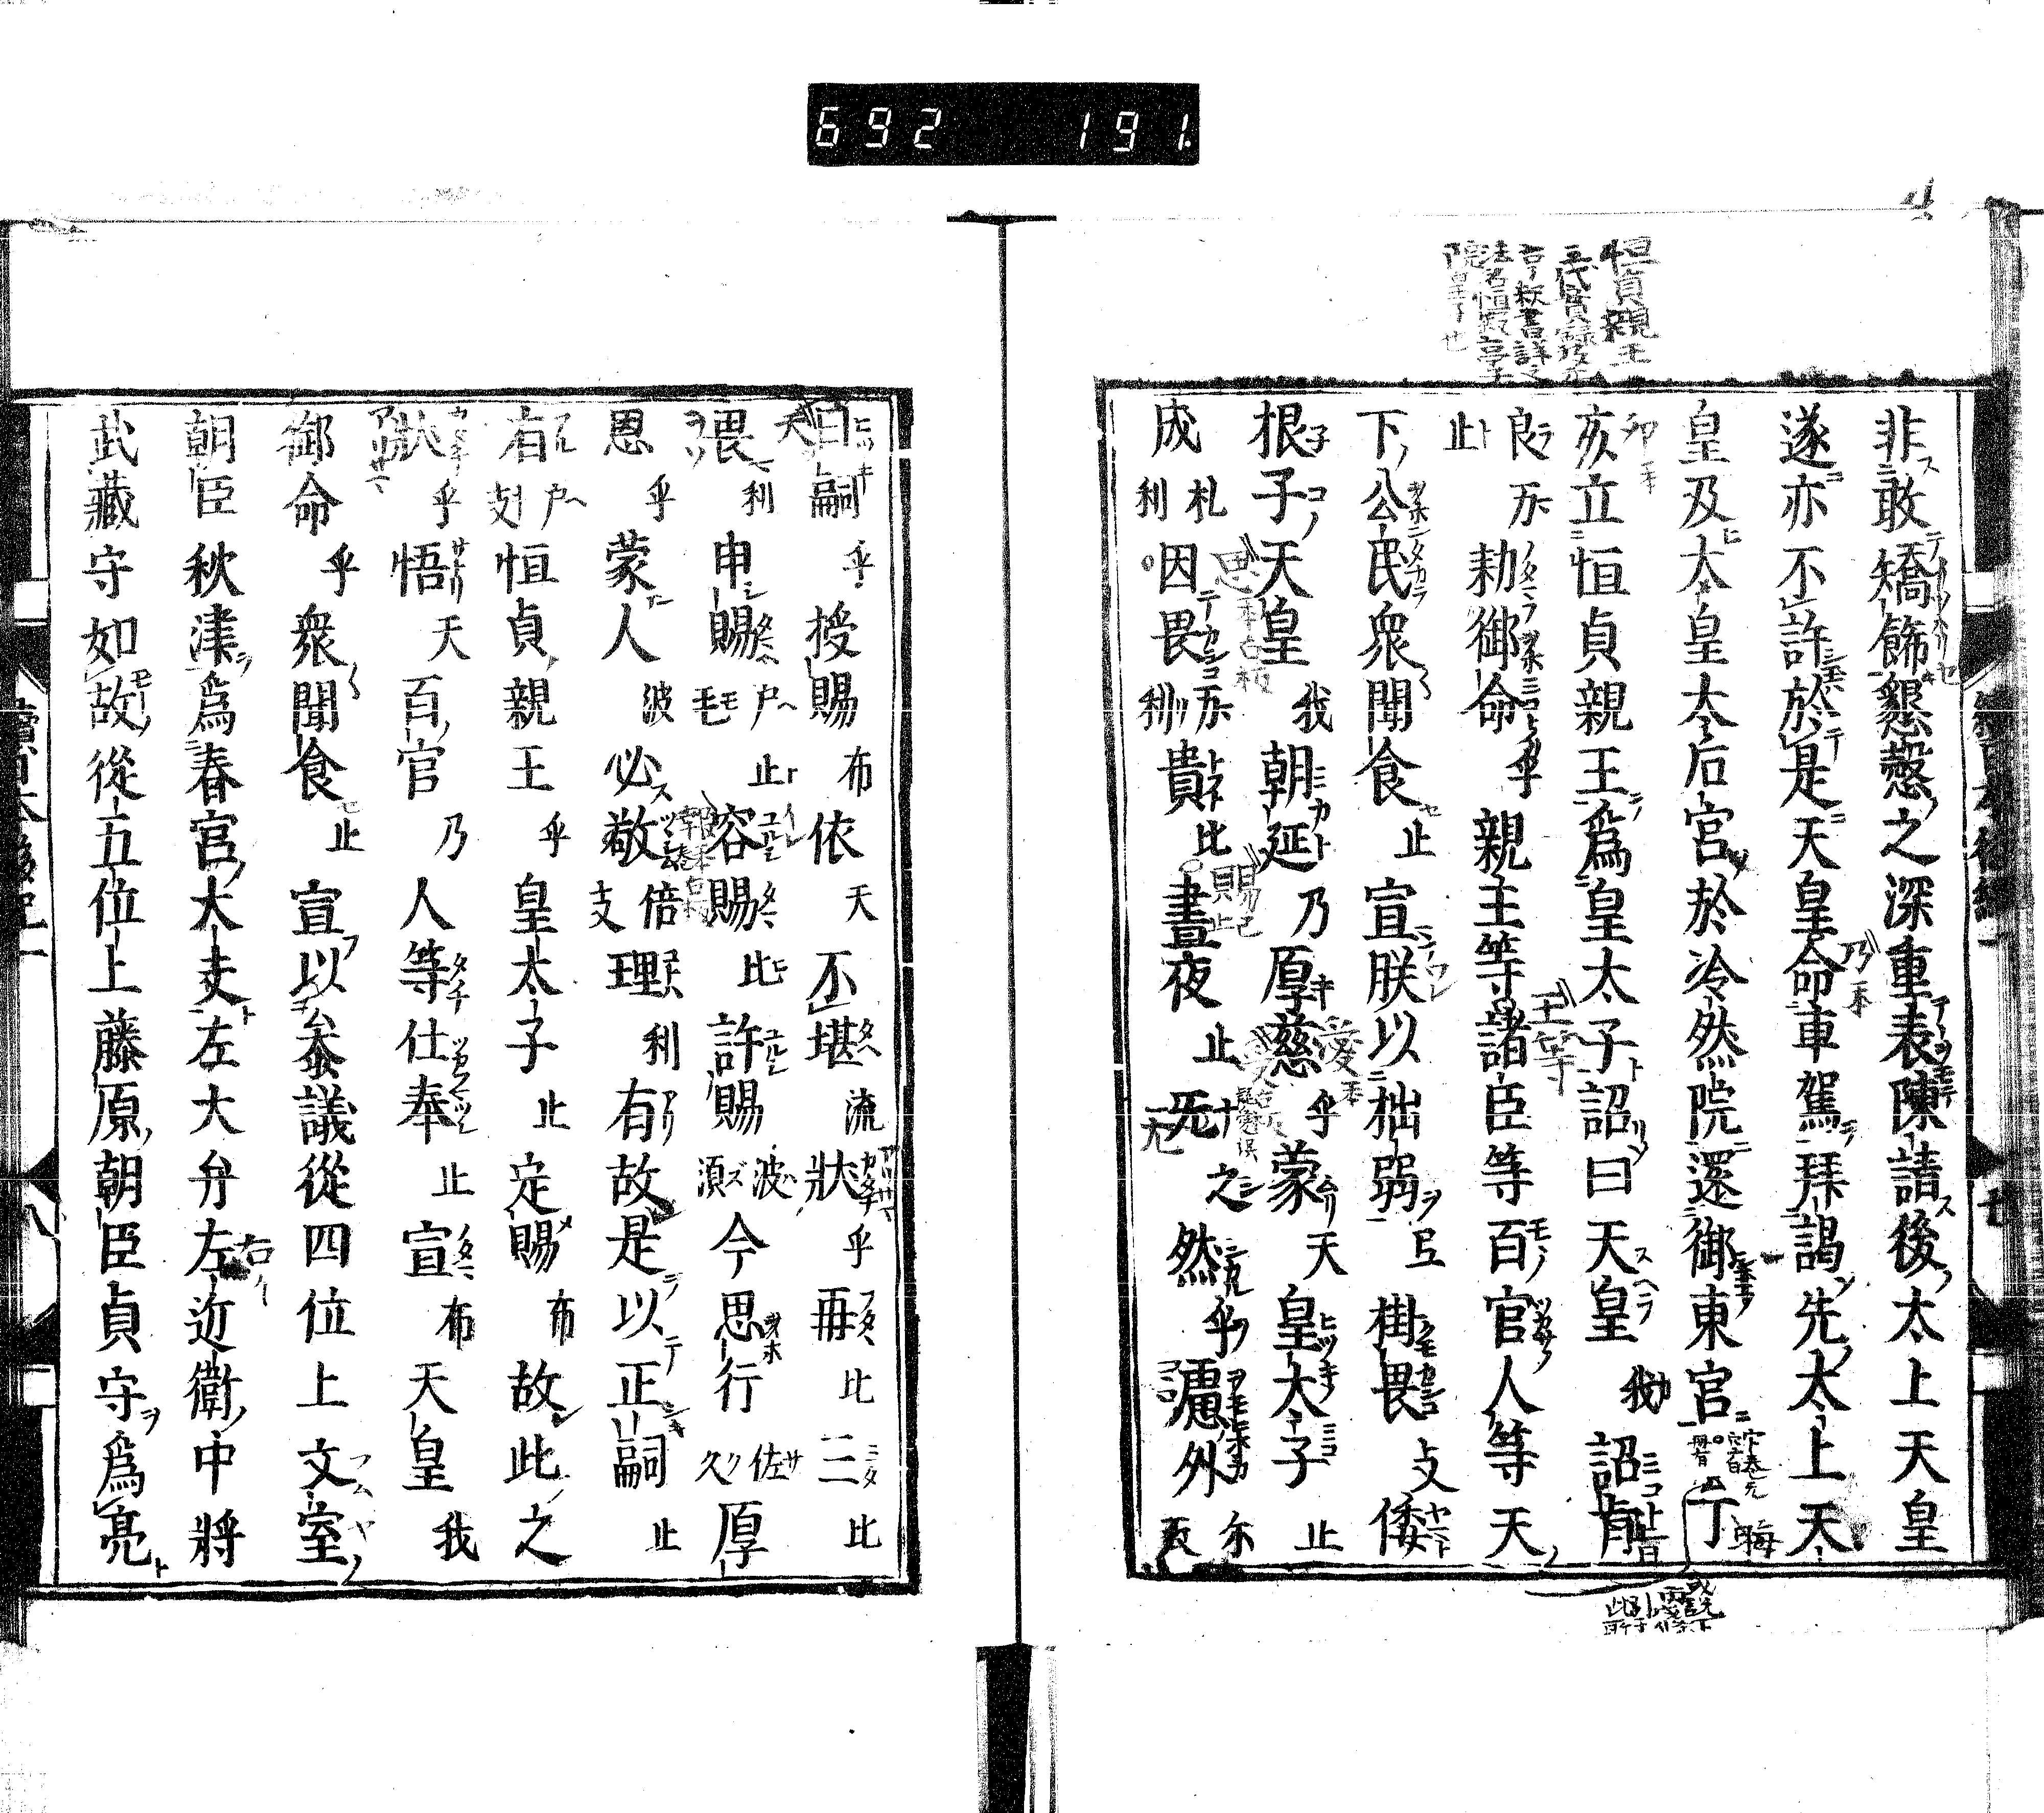 692 191
恒貞親王
非敢矯飾懇慤之深重表陳請後太上天皇
遂亦不許於是天皇命車駕拜謁先太上天
皇及太皇太后宮於冷然院還御東宮丁
亥立恒貞親王爲皇太子詔曰天皇我詔旨
良万止勅御命乎親王等諸臣等百官人等天
下公民衆聞食止宣朕以拙弱弖掛畏支倭
根子天皇我朝廷乃厚慈乎蒙天皇太子止
成利札利因畏利万利貴比晝夜止无之然乎慮外尓
日嗣乎授賜布依天不堪流狀乎再比三比
畏利申賜戶止毛容賜比許賜波須今思行久佐厚
恩乎蒙人波必敬倍支理利有故是以正嗣止
有戶支恒貞親王乎皇太子止定賜布故此之
狀乎悟天百官乃人等仕奉止宣布天皇我
御命乎衆聞食止宣以叅議從四位上文室
朝臣秋津爲春宮大夫左大弁左近衛中將
武藏守如故從五位上藤原朝臣貞守爲亮